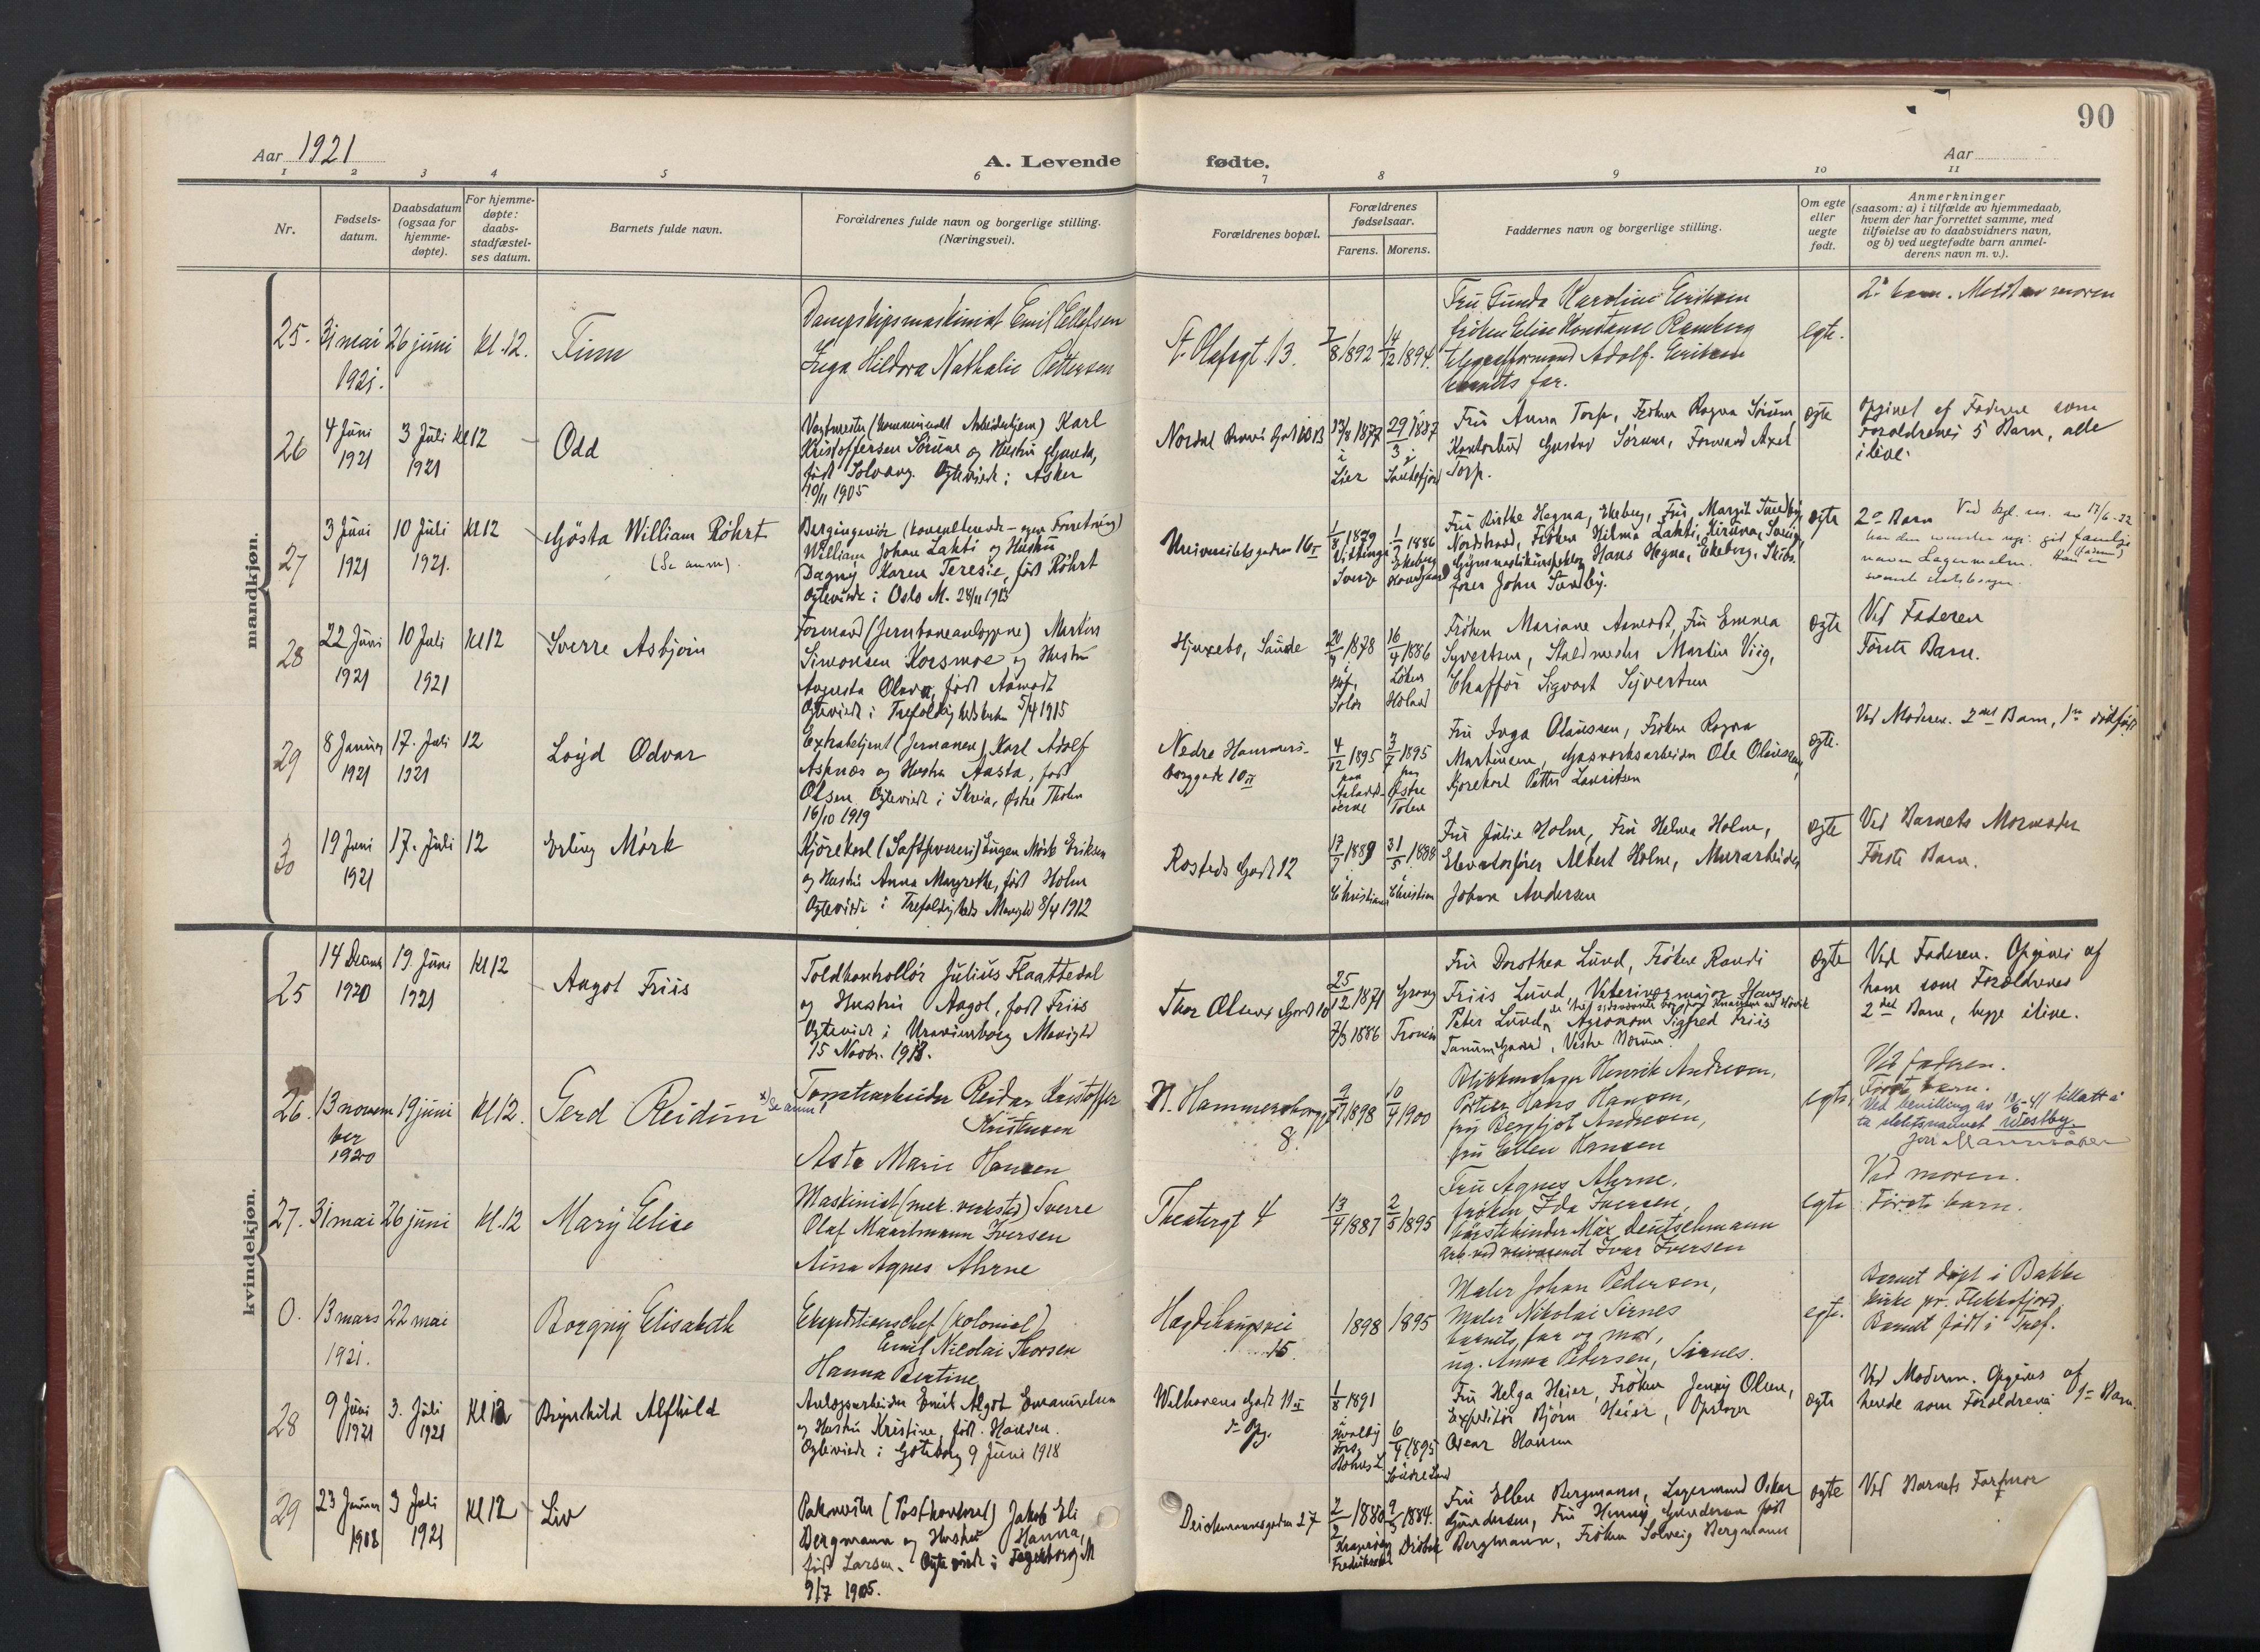 90
Aar 1921
A. Levende fødte.
Aar
1 2 3 4 5 6 7 8 9 10 11
Nr.
Fødsels-
datum.
Daabsdatum
(ogsaa for
hjemme-
døpte).
For hjemme-
døpte:
daabs-
stadfæstel-
ses datum.
Barnets fulde navn.
Forældrenes fulde navn og borgerlige stilling.
(Næringsvei).
Forældrenes bopæl.
Forældrenes
fødselsaar.
Farens. Morens.
Faddernes navn og borgerlige stilling.
Om egte
eller
uegte
født.
Anmerkninger
(saasom: a) i tilfælde av hjemmedaab,
hvem der har forrettet samme, med
tilføielse av to daabsvidners navn,
og b) ved uegtefødte barn anmel-
derens navn m. v.).
mandkjøn.
25. 31 mai
1921.
26 juni
Kl. 12.
Finn
Dampskipsmaskinist Emil Ellefsen
Inga Hildora Nathalie Pettersen
St. Olafsgt. 13.
7/8 1892
14/12 1894.
Fru Gunda Karoline Eriksen
frøken Elise Konstanse Ramberg
telegrafformand Adolf Eriksen
barnets far.
egte.
2. barn. Meldt av moren
26
4 Juni
1921
3 Juli
1921
Kl 12
Odd
Vagtmester (kommunalt Arbeidshjem) Karl
Kristoffersen Sørum og Hustru Gunda,
født Solvang. Egteviede i Asker
10/11 1905
Nordal Bruns Gade
13/8 1877
i
Lier
29/3 1887
i
Sandefjord
Fru Anna Torp, Frøken Ragna Sørum,
Kontorbud Gustav Sørum, Formand Axel
Torp.
egte
Opgivet af Faderen som
Forældrenes 5 Barn, alle
ilive.
27
3 Juni
1921
10 Juli
1921.
Kl 12
Gösta William Röhrt
(Se anm).
Bergingeniør (konsulterende - egen Forretning)
William Johan Lahti og Hustru
Dagny Karen Teresie, født Röhrt
Egteviede i Oslo M. 28/11 1913
Universitetsgaden 16 II
1/8 1879
Vittangi
Sverige
1886
Ekeberg
Hovedgaard
Fru Birthe Hegna, Ekeberg, Fru Margit Sundby,
Nordstrand, Frøken Hilma Lahti, Kiruna, Sverige,
Gymnastikinspektør Hans Hegna, Ekeberg, Skibs-
fører John Sundby.
egte
2det Barn Ved kgl. res. av 17/6-22
navn Lagermalm.
svensk statsborger.
28
22 Juni
1921
10 Juli
1921
Kl 12
Sverre Asbjørn
Formand (Jernbaneanlæggene) Martin
Simonsen Korsmoe og Hustru
Augusta Olava, født Aamodt
Egteviede i Trefoldighedskirken 5/4 1915
Hjuxebo, Saude
1878
Hof,
Solør
16/4 1886
Løken
Høland
Frøken Mariane Aamodt, Fru Emma
Syvertsen, Staldmester Martin Viig,
Chaffør Sigvart Syvertsen
egte
Ved Faderen
Første Barn.
29
8 Januar
1921
17. Juli
1921
12
Loyd Odvar
Extrabetjent (Jernbanen) Karl Adolf
Aspnæs og Hustru Aasta, født
Olsen Egteviede i Skreia, Østre Thoten
16/10 1919
Nedre Hammers-
borggade 10 II
4/12 1895
paa
3/7 1895
paa
Østre
Toten
Fru Inga Olaussen, Frøken Ragna
Martinsen, Gasverksarbeider Ole Olaussen,
Kjørekarl Petter Lauritsen
egte.
Ved Moderen. 2det Barn, 1ste dødfødt
30
19 Juni
1921
17. Juli
12
Erling Mørk
Kjørekarl (Saftpresseri) Eugen Mørk Eriksen
og Hustru Anna Margrethe, født Holm
Egteviede i Trefoldigheds Menighed 8/4 1912
Rosteds Gade 12
17/7 1889
i
Christiania
31/5 1888
i
Christiania
Fru Julie Holm, Fru Helma Holm,
Elevatorfører Albert Holm, Murarbeider
Johan Andersen
egte
Ved Barnets Mormoder
Første Barn.
kvindekjøn.
25
14 Decembr
1920
19. Juni
1921
Kl 12
Aagot Friis
Toldkontrollør Julius Flaattedal
og Hustru Aagot, født Friis
Egteviede i Uranienborg Menighed
15 Novbr. 1918.
Thor Olsens Gade 10
25/12 1871 Grong
7/3 1886 Tromsø
Fru Dorothea Lund, Frøken Randi
Friis Lund, Veterinærmajor Hans
Peter Lund, Agronom Sigfred Friis
Tanum Gaard, Vestre Bærum.
egte
Ved Faderen. Opgives af
ham som Forældrenes
2det Barn, begge ilive.
26. 13 novem
ber
1920
19 juni
Kl 12.
Gerd Reidun x) Se anm!
Tomtearbeider Reidar Kristoffer
Kristensen
Asta Marie Hansen
N. Hammersborggt
8.
1898
10/4 1900
Blikkenslager Henrik Andresen,
Portier Hans Hansen,
fru Bergljot Andresen,
fru Ellen Hansen
egte.
Ved faderen.
Første barn.
Ved bevilling av 18/6-41 tillatt å
ta slektsnavnet Westby.
27. 31 mai
26 juni
Kl. 12
Mary Elise
Maskinist (mek. verksted) Sverre
Olaf Maartmann Iversen
Aina Agnes Ahrne
Theatergt 4
13/4 1887
2/5 1895
Fru Agnes Ahrne,
frøken Ida Iversen,
børstebinder Max Deutschmann
arb. ved veivæsenet Ivar Iversen
egte
Ved moren.
Første barn.
0. 13 mars
1921.
22 mai
Borgny Elisabeth
Ekspeditionschef (kolonial)
Emil Nicolai Thorsen
Hanna Bertine
Hegdehaugsvei
15.
1898
1895
Maler Johan Pedersen,
Maler Nikolai Sirnes
barnets far og mor,
ug. Anna Pedersen, Sirnes.
egte.
Barnet døpt i Bakke
kirke pr. Flekkefjord.
Barnet født i Tref.
28
9 Juni
1921
3. Juli
1921
Kl 12
Brynhild Alfhild
Anlægsarbeider Emil Algot Emanuelsen
og Hustru Kristine, født Hansen.
Egteviede i Göteborg 9 Juni 1918
Welhavens Gade 11 II
1/8 1891
i
6/4 1895
Fru Helga Heier, Frøken Jenny Olsen,
Expeditør Bjørn Heier, Opsager
Oscar Hansen
egte
Ved Moderen. Opgives af
hende som Forældrenes 1ste Barn.
29
23 Januar
1908
3 Juli
1921
Kl 12
Liv
Pakmester (Postkontoret) Jakob Eli
Bergmann og Hustru Hanna,
født Larsen. Egteviede i Fagerborg M
9/7 1905.
Deichmannsgaden 27
2/2 1880
Kragerøen
Fredrikstad
9/3 1884.
Drøbak
Fru Ellen Bergmann, Lagermand Oskar
Gundersen, Fru Henny Gundersen født
Bergmann, Frøken Solveig Bergmann
egte
Ved Barnets Farmor